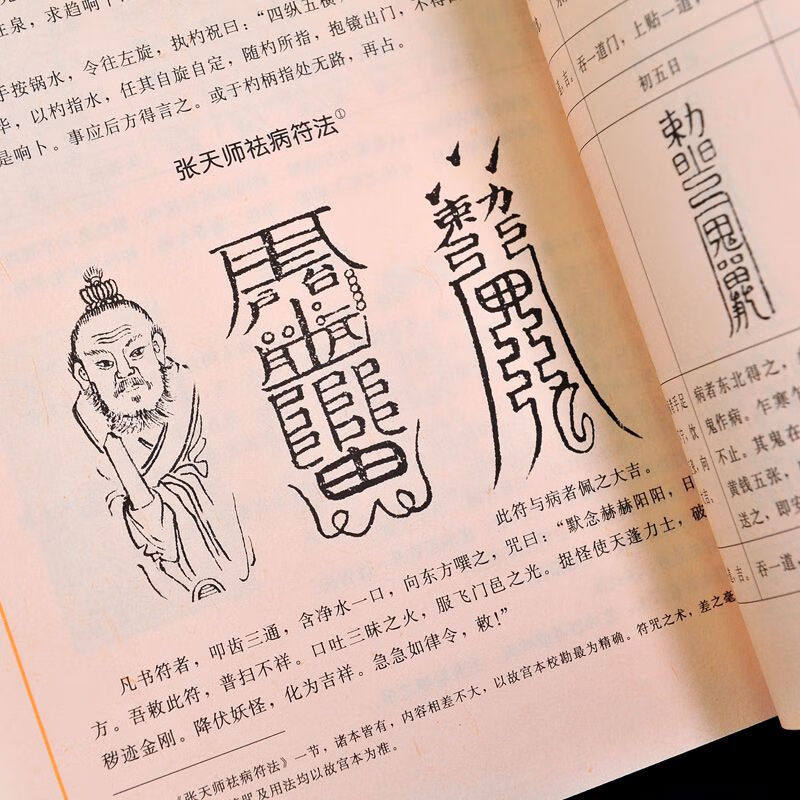 泉，求趋响卜
手按锅水，令往左旋，执杓祝曰：“四纵五横，
，以杓指水，任其自旋自定，随杓所指，抱镜出门，不得
是响卜。事应后方得言之。或于杓柄指处无路，再占。
张天师祛病符法①
此符与病者佩之大吉。
凡书符者，叩齿三通，含净水一口，向东方噀之，咒曰：“默念赫赫阳阳，日
方。吾敕此符，普扫不祥。口吐三昧之火，服飞门邑之光。捉怪使天蓬力士，破
秽迹金刚。降伏妖怪，化为吉祥。急急如律令，敕！”
《张天师祛病符法》一节，诸本皆有，内容相差不大，以故宫本校勘最为精确。符咒之术，差之毫
及用法均以故宫本为准。
吉。吞一道门，上贴一道
初五日
病者东北得之，
鬼作病。乍寒
不止。其鬼在
黄钱五张，
送之，即安
吉。吞一道，